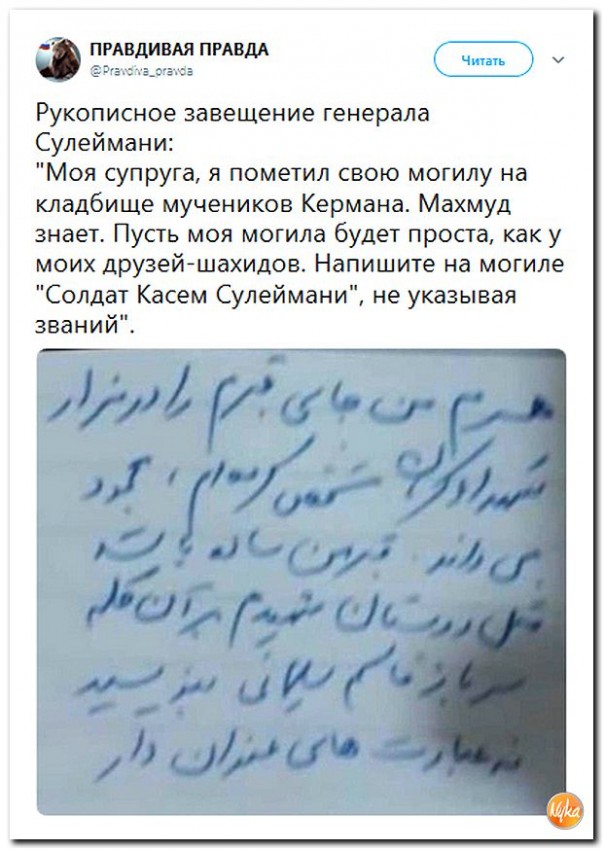 ПРАВДИВАЯ ПРАВДА
@Pravdiva_pravda
Читать
Рукописное завещение генерала
Сулеймани:
"Моя супруга, я пометил свою могилу на
кладбище мучеников Кермана. Махмуд
знает. Пусть моя могила будет проста, как у
моих друзей-шахидов. Напишите на могиле
"Солдат Касем Сулеймани", не указывая
званий".
همسرم من جای قبرم را در مزار
شهدا کرمان مشخص کرده‌ام، محمود
می داند. قبر من ساده باشد
مثل دوستان شهیدم بر آن کلمه
سرباز قاسم سلیمانی بنویسید
نه عبارت های عنوان دار
Nyka